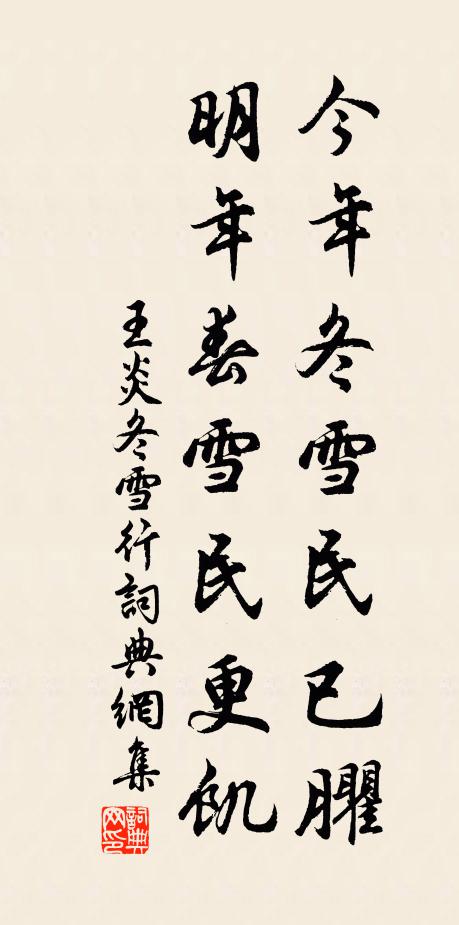 今年冬雪民已臞
明年春雪民更飢
王炎冬雪行詞典網集
詞典网印